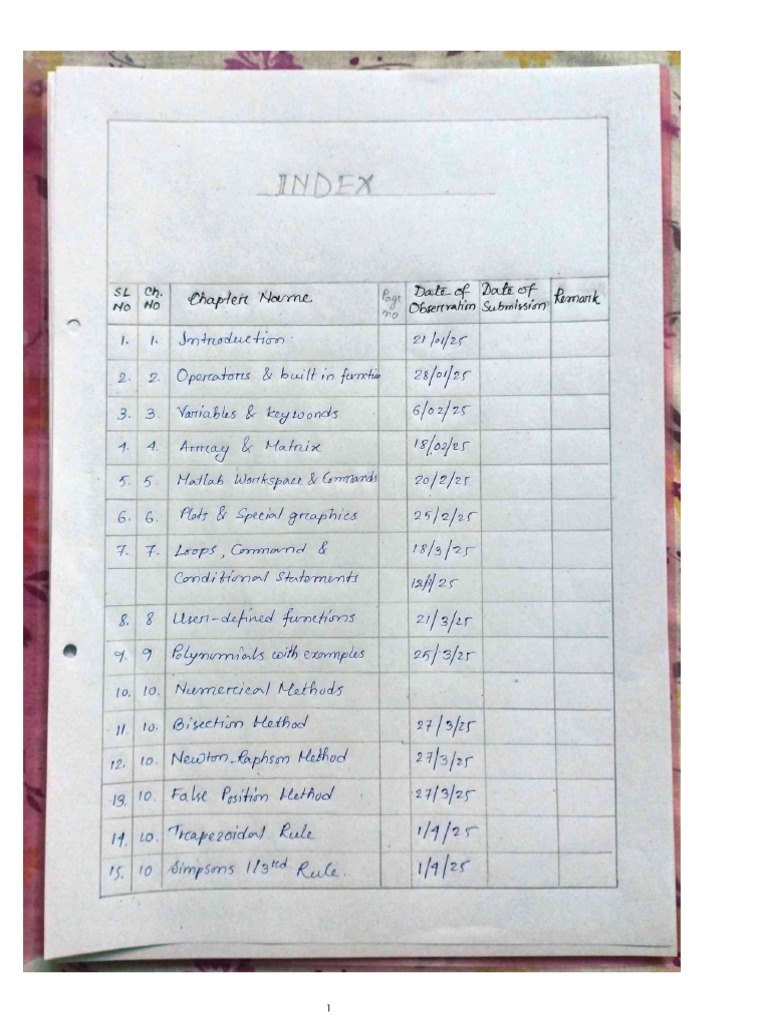 INDEX
SL No Ch. No Chapter Name Page no Date of Observation Date of Submission Remark
1. 1. Introduction 21/01/25
2. 2. Operators & built in function 28/01/25
3. 3. Variables & keywords 6/02/25
4. 4. Array & Matrix 18/02/25
5. 5. Matlab Workspace & Commands 20/2/25
6. 6. Plots & Special graphics 25/2/25
7. 7. Loops, Command & 18/3/25
Conditional Statements
8. 8 User-defined functions 21/3/25
9. 9 Polynomials with examples 25/3/25
10. 10. Numerical Methods
11. 10. Bisection Method 27/3/25
12. 10. Newton-Raphson Method 27/3/25
13. 10. False Position Method 27/3/25
14. 10. Trapezoidal Rule 1/4/25
15. 10 Simpsons 1/3rd Rule. 1/4/25
1